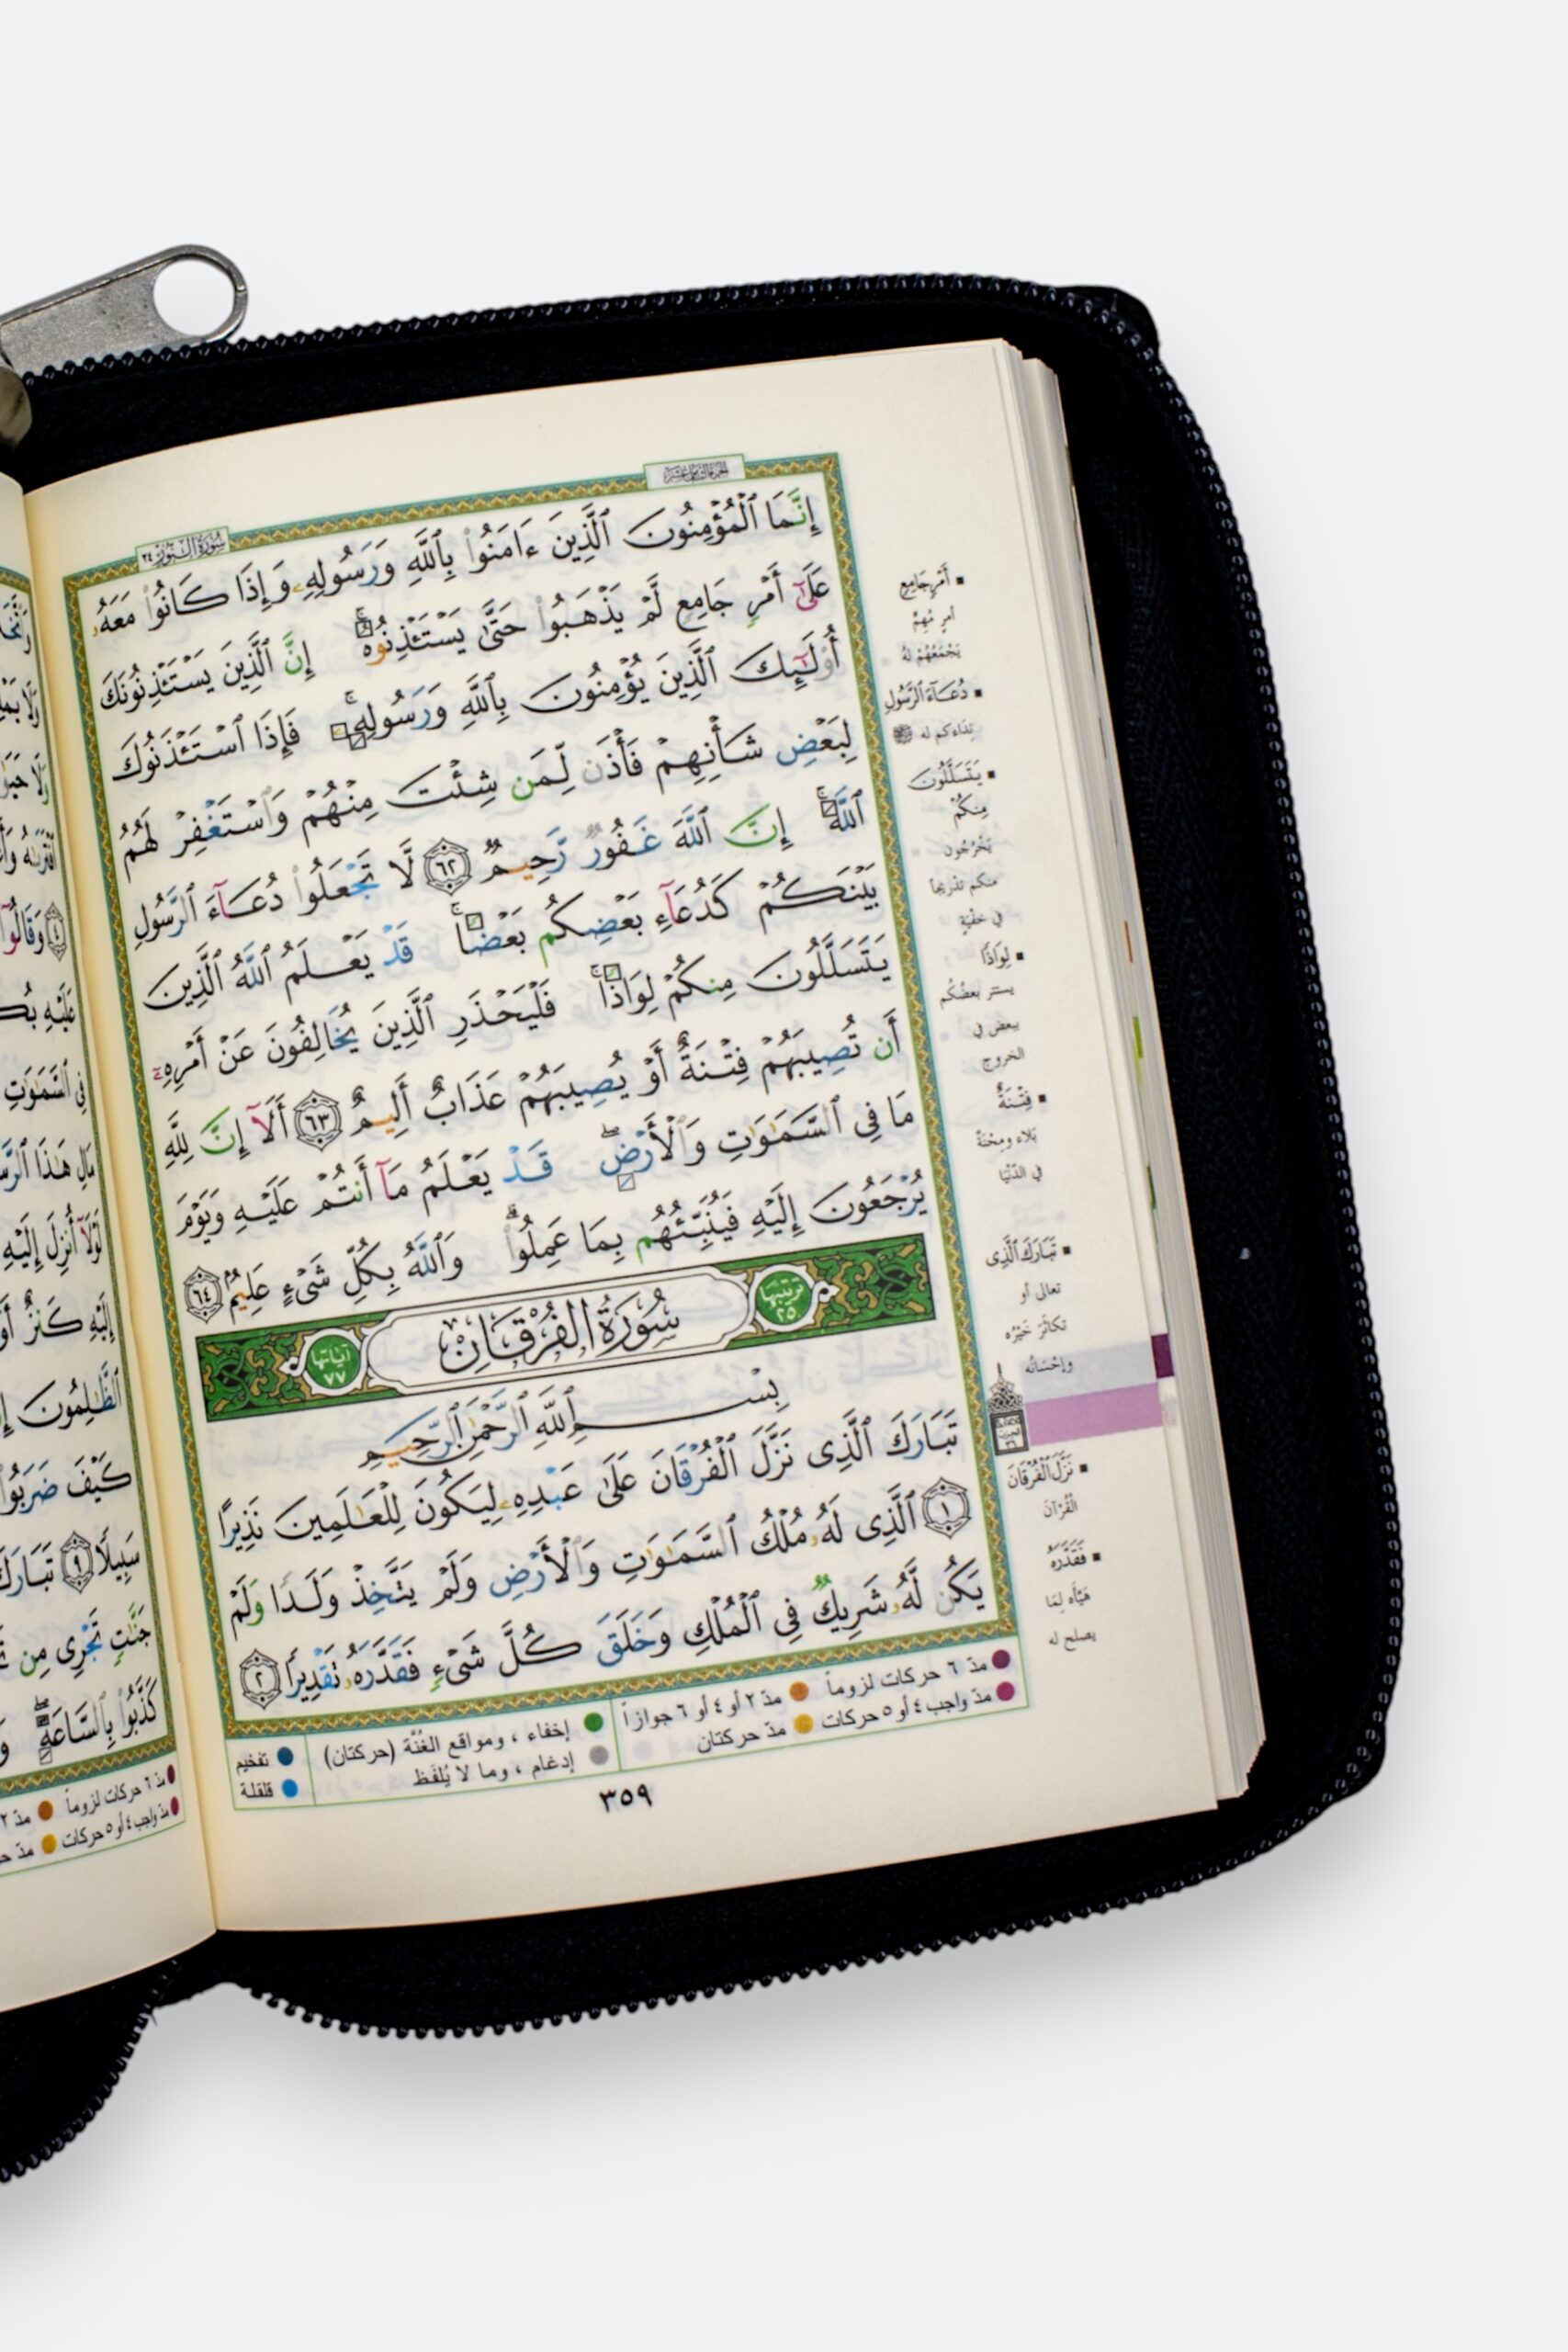 سُورَةُ النُّورِ ٢٤
إِنَّمَا ٱلْمُؤْمِنُونَ ٱلَّذِينَ ءَامَنُوا۟ بِٱللَّهِ وَرَسُولِهِۦ وَإِذَا كَانُوا۟ مَعَهُۥ
عَلَىٰٓ أَمْرٍ جَامِعٍ لَّمْ يَذْهَبُوا۟ حَتَّىٰ يَسْتَـْٔذِنُوهُ ۚ إِنَّ ٱلَّذِينَ يَسْتَـْٔذِنُونَكَ
أُو۟لَـٰٓئِكَ ٱلَّذِينَ يُؤْمِنُونَ بِٱللَّهِ وَرَسُولِهِۦ ۚ فَإِذَا ٱسْتَـْٔذَنُوكَ
لِبَعْضِ شَأْنِهِمْ فَأْذَن لِّمَن شِئْتَ مِنْهُمْ وَٱسْتَغْفِرْ لَهُمُ
ٱللَّهَ ۚ إِنَّ ٱللَّهَ غَفُورٌ رَّحِيمٌ ٦٢ لَّا تَجْعَلُوا۟ دُعَآءَ ٱلرَّسُولِ
بَيْنَكُمْ كَدُعَآءِ بَعْضِكُم بَعْضًا ۚ قَدْ يَعْلَمُ ٱللَّهُ ٱلَّذِينَ
يَتَسَلَّلُونَ مِنكُمْ لِوَاذًا ۚ فَلْيَحْذَرِ ٱلَّذِينَ يُخَالِفُونَ عَنْ أَمْرِهِۦٓ
أَن تُصِيبَهُمْ فِتْنَةٌ أَوْ يُصِيبَهُمْ عَذَابٌ أَلِيمٌ ٦٣ أَلَآ إِنَّ لِلَّهِ
مَا فِى ٱلسَّمَـٰوَٰتِ وَٱلْأَرْضِ ۖ قَدْ يَعْلَمُ مَآ أَنتُمْ عَلَيْهِ وَيَوْمَ
يُرْجَعُونَ إِلَيْهِ فَيُنَبِّئُهُم بِمَا عَمِلُوا۟ ۗ وَٱللَّهُ بِكُلِّ شَىْءٍ عَلِيمٌۢ ٦٤
ترتيبها ٢٥ سُورَةُ الْفُرْقَانِ آياتها ٧٧
بِسْمِ ٱللَّهِ ٱلرَّحْمَـٰنِ ٱلرَّحِيمِ
تَبَارَكَ ٱلَّذِى نَزَّلَ ٱلْفُرْقَانَ عَلَىٰ عَبْدِهِۦ لِيَكُونَ لِلْعَـٰلَمِينَ نَذِيرًا
١ ٱلَّذِى لَهُۥ مُلْكُ ٱلسَّمَـٰوَٰتِ وَٱلْأَرْضِ وَلَمْ يَتَّخِذْ وَلَدًا وَلَمْ
يَكُن لَّهُۥ شَرِيكٌ فِى ٱلْمُلْكِ وَخَلَقَ كُلَّ شَىْءٍ فَقَدَّرَهُۥ تَقْدِيرًا ٢
أَمْرٍ جَامِعٍ
أمرٍ مُهِمّ
يَجْمَعُهُمْ لَهُ
دُعَآءَ ٱلرَّسُولِ
نِدَاءَكم له ﷺ
يَتَسَلَّلُونَ
مِنكُمْ
يَخْرُجُون
منكم تدْرِيجاً
في خفْيَةٍ
لِوَاذًا
يستتر بعضُكُم
ببعض في
الخروج
فِتْنَةٌ
بَلاء ومِحْنَةٌ
في الدّنْيَا
تَبَارَكَ ٱلَّذِى
تعالى أو
تكاثَرَ خَيْرُه
وإحْسَانُه
نَزَّلَ ٱلْفُرْقَانَ
الْقُرْآنَ
فَقَدَّرَهُ
هَيَّأه لِمَا
يصلح له
مدّ ٦ حركات لزوماً مدّ ٢ أو ٤ أو ٦ جوازاً
مدّ واجب ٤ أو ٥ حركات مدّ حركتان
إخفاء ، ومواقع الغُنَّة (حركتان)
إدغام ، وما لا يُلفَظ
تفخيم
قلقلة
٣٥٩